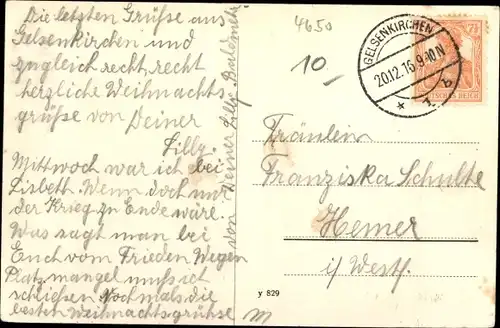 Die letzten Grüße aus
Gelsenkirchen und
zugleich recht, recht
herzliche Weihnachts-
grüße von Deiner
Lilly.
Mittwoch war ich bei
Lisbeth. Wenn doch nur
der Krieg zu Ende wäre.
Was sagt man bei
Euch vom Frieden. Wegen
Platzmangel muß ich
schließen. Nochmals die
besten Weihnachtsgrüße
von Deiner Lilly.
4650
10_
GELSENKIRCHEN
20.12.16.9-10N
* 1. b
7½
DEUTSCHES REICH
Fräulein
Franziska Schulte
Hemer
i/ Westf.
y 829